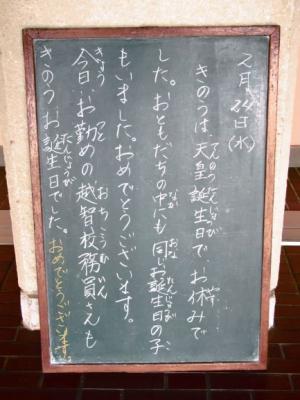 2月24日(水)
きのうは、天皇誕生日で お休みで
した。おともだちの中にも 同じお誕生日の子
もいました。おめでとうございます。
今日、お勤めの越智校務員さんも
きのう、お誕生日でした。おめでとうございます。